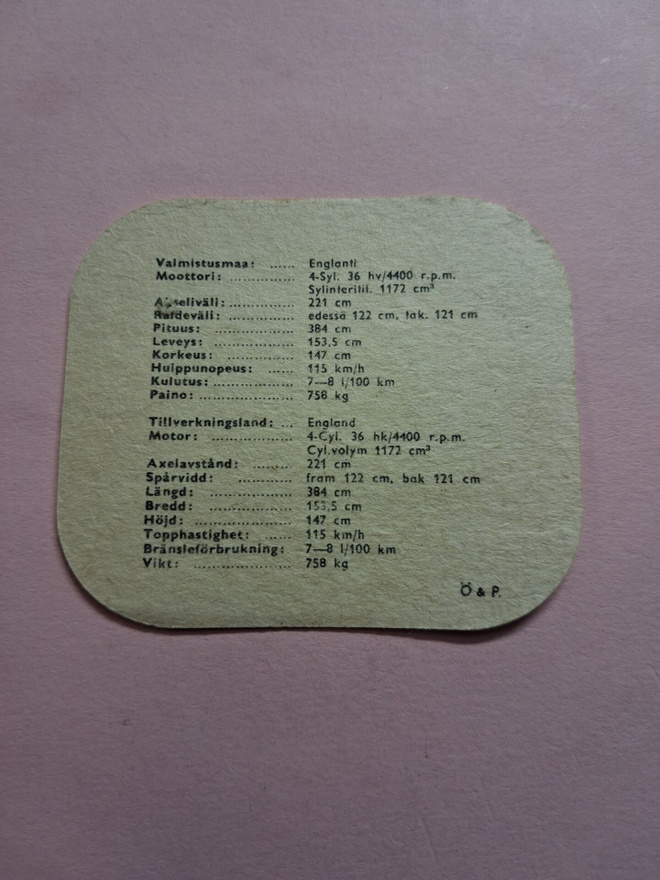 Valmistusmaa: ...... Englanti
Moottori: ................ 4-Syl. 36 hv/4400 r.p.m.
Sylinteritil. 1172 cm³
Akseliväli: ................ 221 cm
Raideväli: ................ edessä 122 cm, tak. 121 cm
Pituus: .................... 384 cm
Leveys: .................... 153,5 cm
Korkeus: ................. 147 cm
Huippunopeus: ...... 115 km/h
Kulutus: .................... 7—8 l/100 km
Paino: ........................ 758 kg
Tillverkningsland: ... England
Motor: .................... 4-Cyl. 36 hk/4400 r.p.m.
Cyl.volym 1172 cm³
Axelavstånd: ......... 221 cm
Spårvidd: ............. fram 122 cm, bak 121 cm
Längd: .................... 384 cm
Bredd: .................... 153,5 cm
Höjd: ........................ 147 cm
Topphastighet: ...... 115 km/h
Bränsleförbrukning: 7—8 l/100 km
Vikt: ........................ 758 kg
Ö & P.